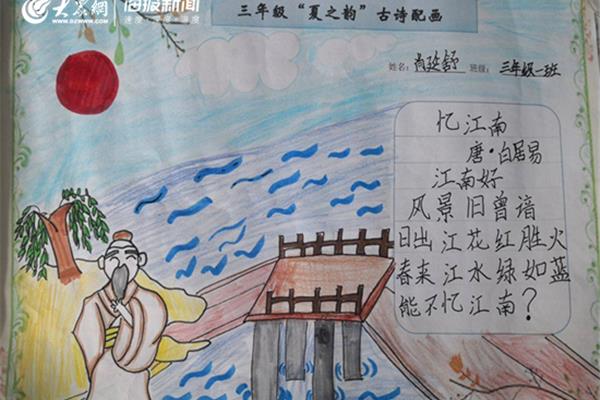 大众网 海报新闻
WWW.DZWWW.COM
三年级“夏之韵”古诗配画
姓名：肖延舒 班级：三年级一班
忆江南
唐·白居易
江南好
风景旧曾谙
日出江花红胜火
春来江水绿如蓝
能不忆江南？